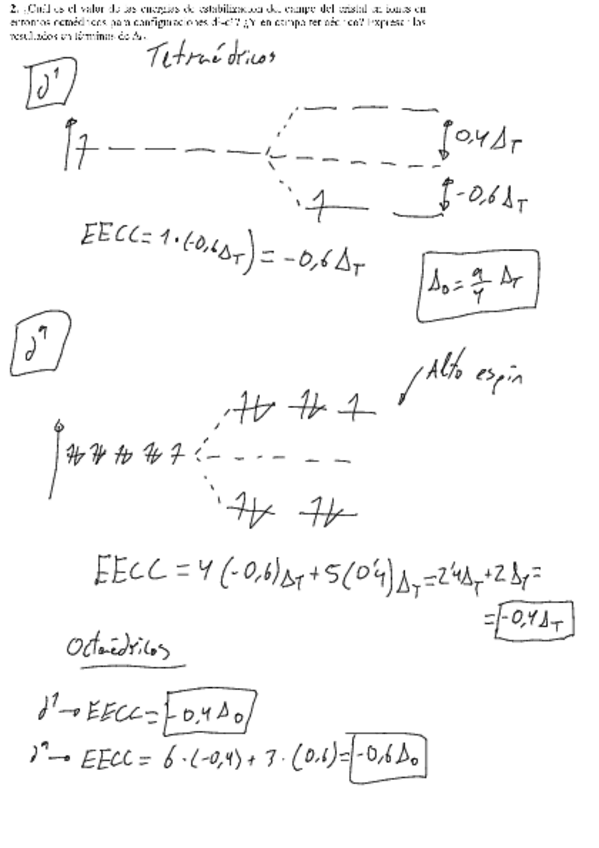 2. ¿Cuál es el valor de las energías de estabilización del campo del cristal en iones en
entornos octaédricos para configuraciones d¹-d⁹? ¿Y en campo tetraédrico? Expresar los
resultados en términos de Δ₀.
Tetraédricos
d¹
0,4 Δ_T
-0,6 Δ_T
EECC = 1·(-0,6 Δ_T) = -0,6 Δ_T
Δ₀ = 9/4 Δ_T
d⁹
Alto espin
EECC = 4 (-0,6) Δ_T + 5 (0'4) Δ_T = 2'4 Δ_T + 2 Δ_T =
= -0,4 Δ_T
Octaédricos
d¹ → EECC = -0,4 Δ₀
d⁹ → EECC = 6·(-0,4) + 3·(0,6) = -0,6 Δ₀